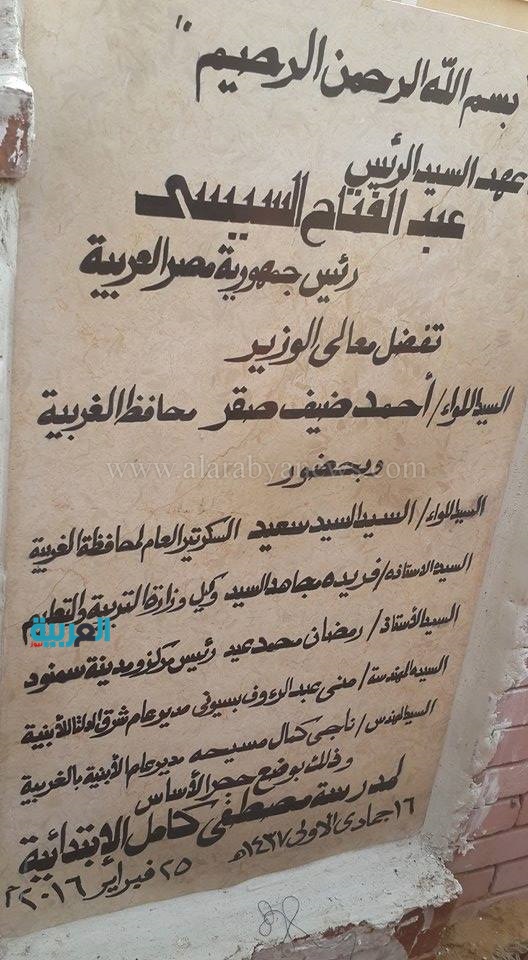 بسم الله الرحمن الرحيم "
عهد السيد الرئيس
عبد الفتاح السيسى
رئيس جمهورية مصر العربية
تفضل معالى الوزير
السيد اللواء/ أحمد ضيف صقر محافظ الغربية
www.alarabyanews.com
وبحضور
السيد اللواء/ السيد السيد سعيد السكرتير العام لمحافظة الغربية
السيدة الاستاذة/ فريده مجاهد السيد وكيل وزارة التربية والتعليم
العربية نيوز
السيد الأستاذ/ رمضان محمد عيد رئيس مركز ومدينة سمنود
السيدة المهندسة/ منى عبد الرءوف بسيونى مدير عام شرق الدلتا للأبنية
السيد المهندس/ ناجى كمال مسيحه مدير عام الأبنية بالغربية
وذلك بوضع حجر الأساس
لمدرسة مصطفى كامل الإبتدائية
١٦ جمادى الاولى ١٤٣٧هـ ٢٥ فبراير ٢٠١٦م